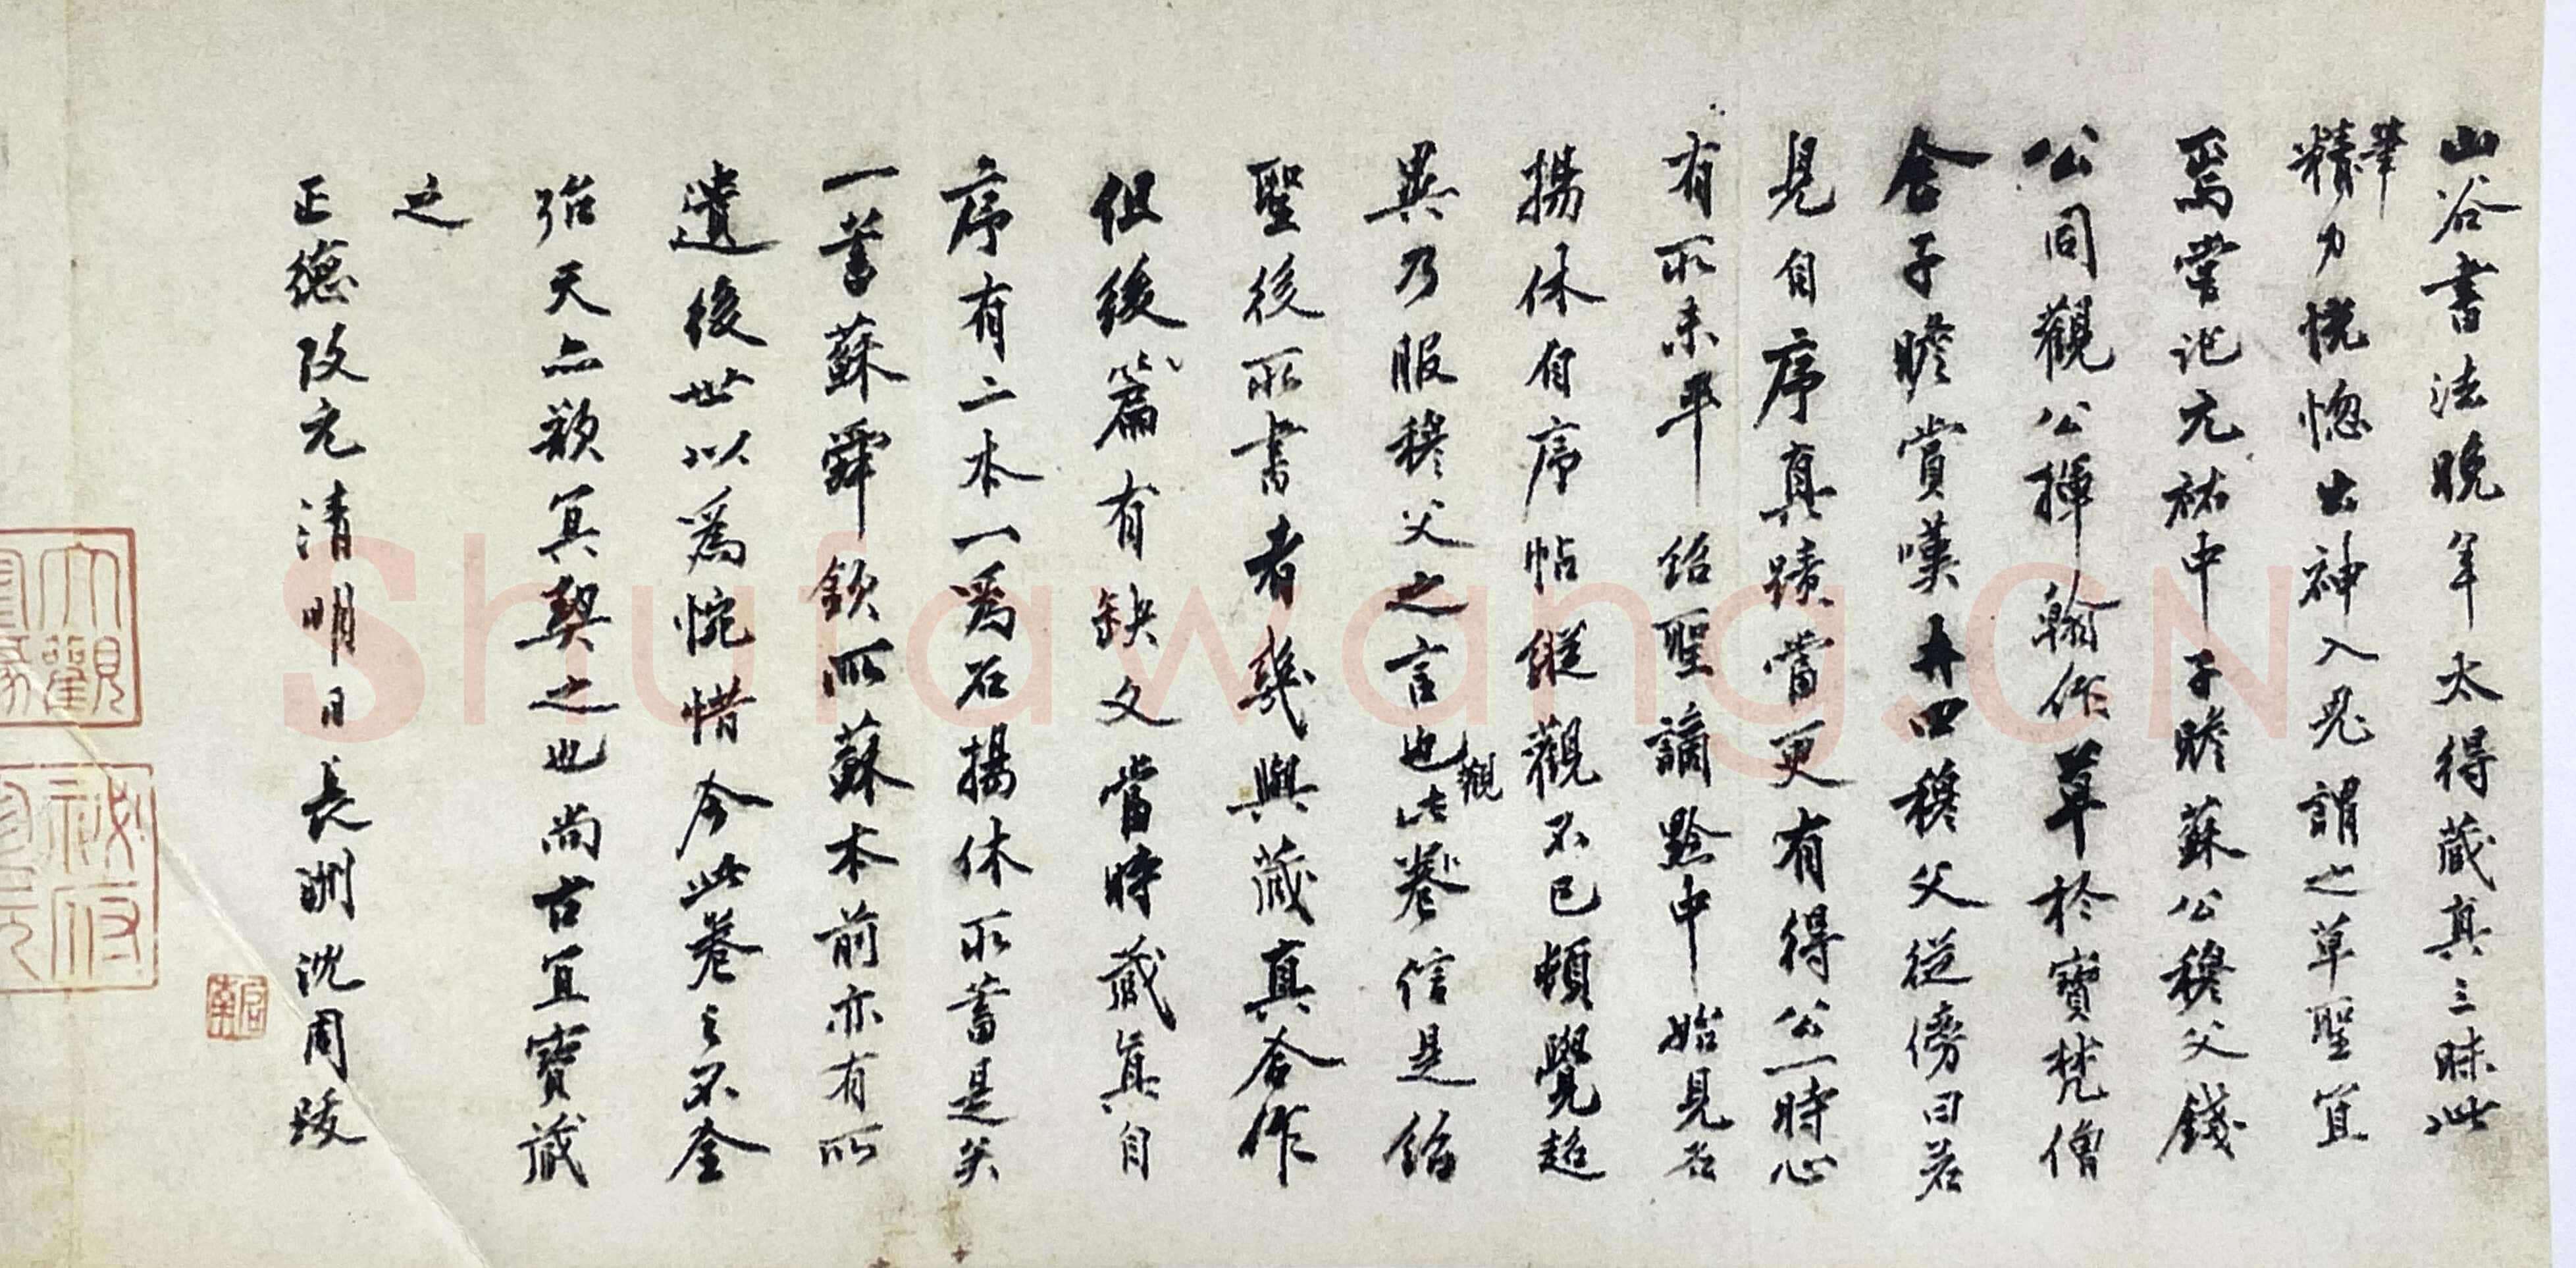 山谷書法晚年太得藏真三昧此
筆
精力恍惚出神入鬼謂之草聖宜
焉嘗記元祐中子瞻蘇公穆父錢
公同觀公揮翰作草於寶梵僧
舍子瞻賞嘆再四穆父從傍曰若
見自序真蹟當更有得公一時心
有所未平紹聖謫黔中始見石
揚休自序帖縱觀不已頓覺超
異乃服穆父之言也此卷信是紹
觀
聖後所書者幾與藏真合作
但後篇有缺文當時藏真自
序有二本一為石揚休所蓄是矣
一蓄蘇舜欽所蘇本前亦有所
遺後世以為惋惜今此卷之不全
殆天亦欲冥契之也尚古宜寶藏
之
正德改元清明日長洲沈周跋
啟南
大觀
秘府
Shufawang.CN